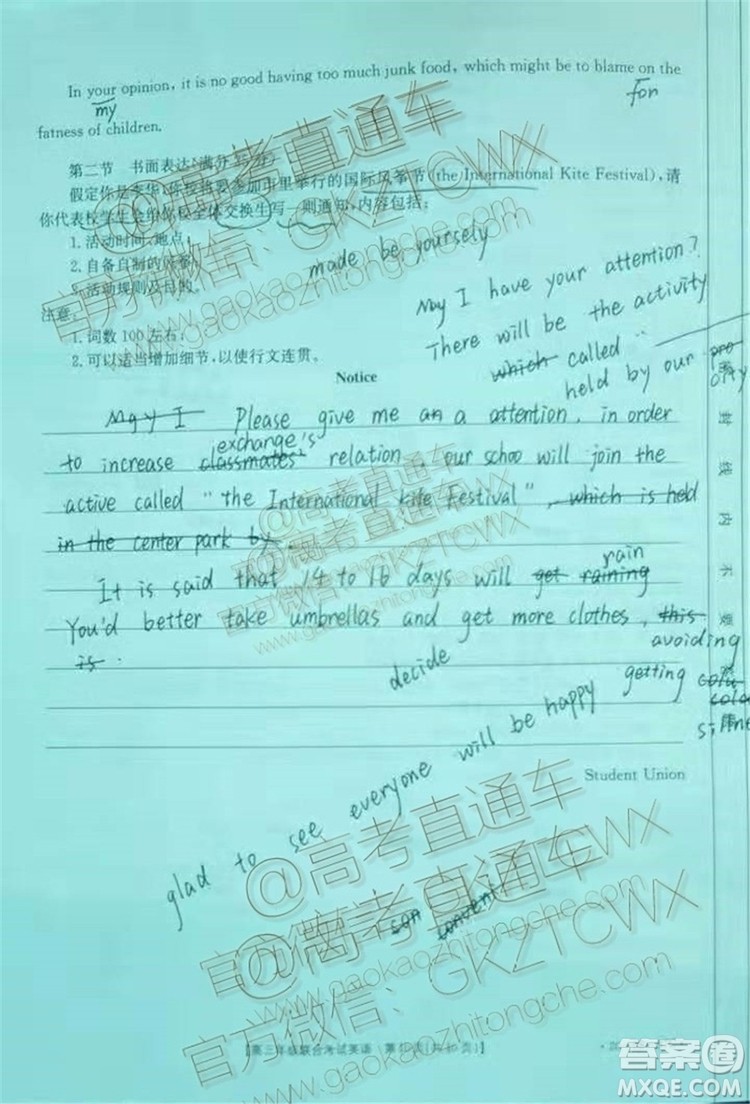 In your opinion, it is no good having too much junk food, which might be to blame on the
my
for
fatness of children.
第二节 书面表达(满分25分)
假定你是李华,你校将要参加市里举行的国际风筝节(the International Kite Festival),请
你代表校学生会给你校全体交换生写一则通知,内容包括:
1.活动时间、地点;
2.自备自制的风筝;
3.活动规则及目的。
注意:
1.词数100左右;
2.可以适当增加细节,以使行文连贯。
made be yoursely
May I have your attention?
There will be the activity
which called "
held by our
Notice
May I Please give me an a attention, in order
exchange's
to increase classmates' relation our schoo will join the
active called "the International kite Festival", which is held
in the center park by
rain
It is said that 14 to 16 days will get raining
You'd better take umbrellas and get more clothes, this
is.
avoiding
decide
getting
glad to see everyone will be happy
Student Union
con
高三年级联合考试英语
密封线内不要
@高考直通车
官方微信:GKZTCWX
www.gaokaozhitongche.com
@高考直通车
官方微信:GKZTCWX
www.gaokaozhitongche.com
@高考直通车
官方微信:GKZTCWX
www.gaokaozhitongche.com
答案圈
MXQE.COM